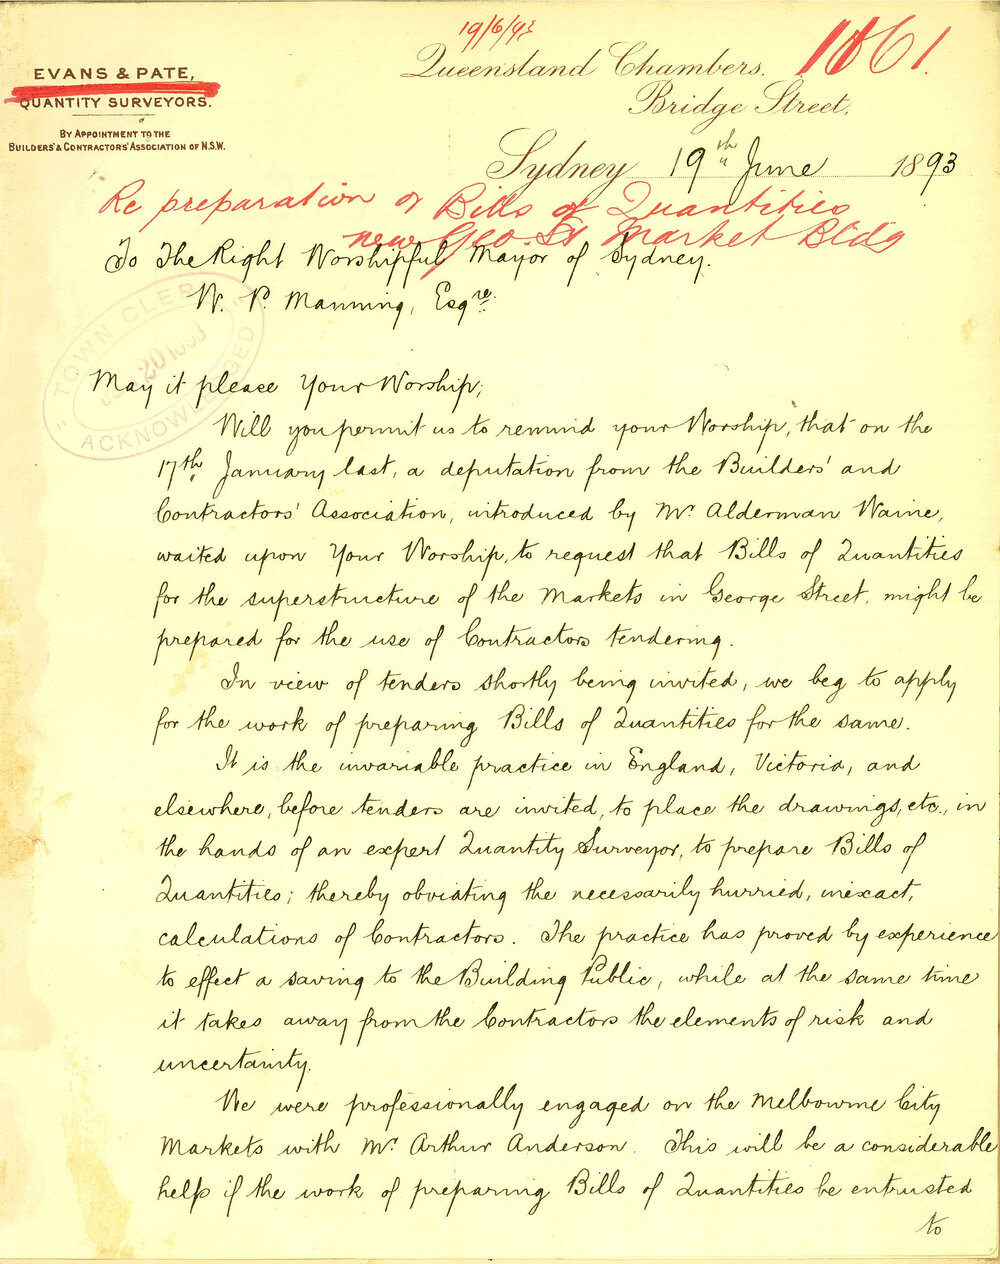 19/6/93
1861.
EVANS & PATE,
QUANTITY SURVEYORS.
BY APPOINTMENT TO THE
BUILDERS' & CONTRACTORS' ASSOCIATION OF N.S.W.
Queensland Chambers,
Bridge Street,
Sydney 19th June 1893
Re preparation of Bills of Quantities
new Geo. St Market Bldg
To The Right Worshipful Mayor of Sydney.
W. P. Manning, Esqre.
TOWN CLERK
20 1893
ACKNOWLEDGED
May it please Your Worship;
Will you permit us to remind your Worship, that on the
17th January last, a deputation from the Builders' and
Contractors' Association, introduced by Mr Alderman Waine,
waited upon Your Worship, to request that Bills of Quantities
for the superstructure of the Markets in George Street, might be
prepared for the use of Contractors tendering.
In view of tenders shortly being invited, we beg to apply
for the work of preparing Bills of Quantities for the same.
It is the invariable practice in England, Victoria, and
elsewhere, before tenders are invited, to place the drawings, etc., in
the hands of an expert Quantity Surveyor, to prepare Bills of
Quantities; thereby obviating the necessarily hurried, inexact,
calculations of Contractors. The practice has proved by experience
to effect a saving to the Building Public, while at the same time
it takes away from the Contractors the elements of risk and
uncertainty.
We were professionally engaged on the Melbourne City
Markets with Mr Arthur Anderson. This will be a considerable
help if the work of preparing Bills of Quantities be entrusted
to